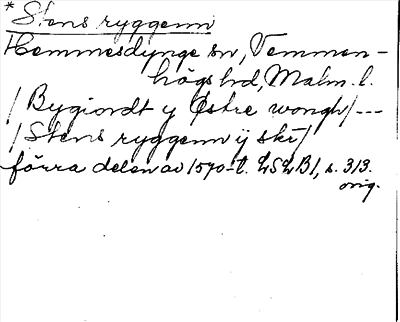 *Stens ryggenn
Hemmesdynge sn, Vemmen-
högs hd, Malm. l.
/ Bygiordt y Østre wongh/ ---
/ Stens ryggenn ij ske/
förra delen av 1570-t. LSLB1, s. 313.
orig.